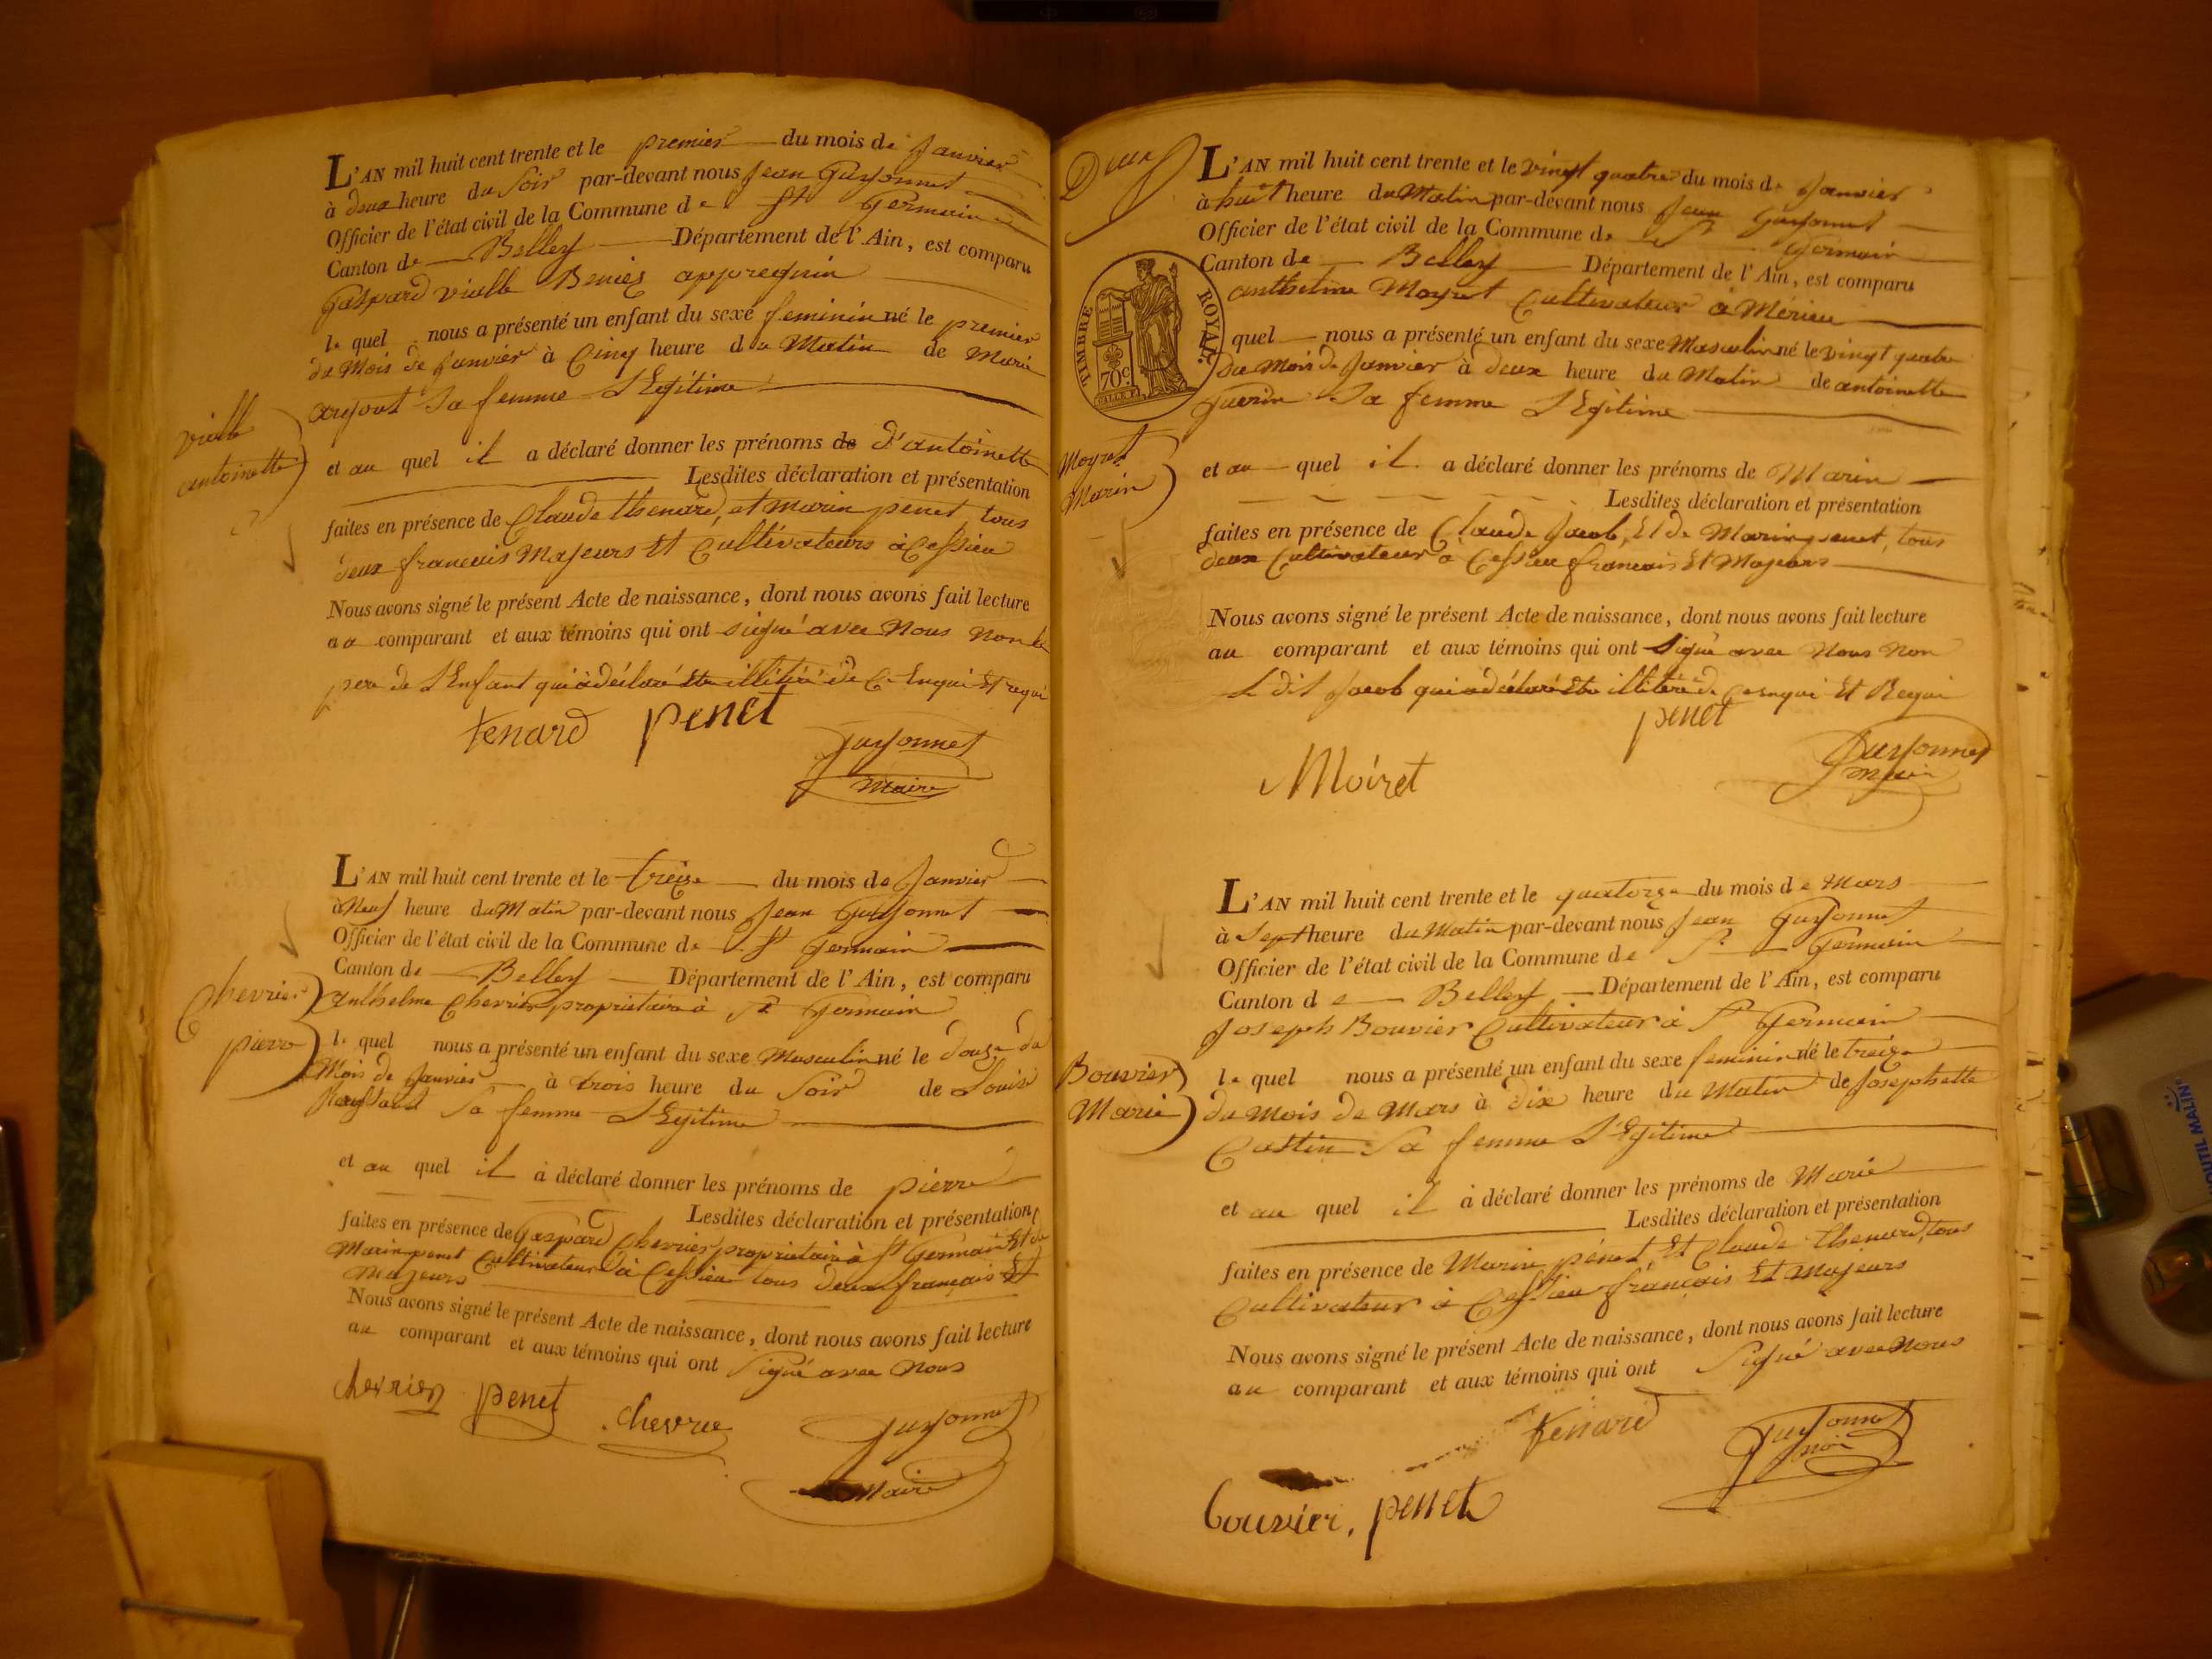 L'AN mil huit cent trente et le premier du mois de Janvier
à deux heure du Soir par-devant nous Jean Guyonnet
Officier de l'état civil de la Commune de St Germain
Canton de Belley Département de l'Ain, est comparu
Gaspard vielle
le quel nous a présenté un enfant du sexe feminin né le premier
du Mois de Janvier à Cinq heure du Matin de Marie
sa femme LEgitime
vielle
antoinette
et au quel il a déclaré donner les prénoms de d'antoinette
Lesdites déclaration et présentation
faites en présence de Claude thenard, et marin penet tous
deux francais Majeurs Et Cultivateurs à Cessieu
Nous avons signé le présent Acte de naissance, dont nous avons fait lecture
au comparant et aux témoins qui ont signé avec Nous Non le
pere de LEnfant qui a déclaré Etre illitéré de Ce Enqui Et requi
tenard penet
Guyonnet
Maire
L'AN mil huit cent trente et le treize du mois de Janvier
à Neuf heure du Matin par-devant nous Jean Guyonnet
Officier de l'état civil de la Commune de St Germain
Canton de Belley Département de l'Ain, est comparu
Chevrier
pierre
Anthelme Chevrier propriétaire à St Germain
le quel nous a présenté un enfant du sexe Masculin né le douze du
Mois de Janvier à trois heure du Soir de Louise
Sa femme LEgitime
et au quel il a déclaré donner les prénoms de pierre
Lesdites déclaration et présentation
faites en présence de Gaspard Chevrier propriétaire à St Germain Et de
Marin penet Cultivateur à Cessieu tous deux français Et
Majeurs
Nous avons signé le présent Acte de naissance, dont nous avons fait lecture
au comparant et aux témoins qui ont Signé avec Nous
chevrier penet chevrie
Guyonnet
Maire
Deux
L'AN mil huit cent trente et le vingt quatre du mois de Janvier
à huit heure du Matin par-devant nous Jean Guyonnet
Officier de l'état civil de la Commune de St Germain
Canton de Belley Département de l'Ain, est comparu
anthelme Moyret Cultivateur à Mérieu
TIMBRE ROYAL.
70c
quel nous a présenté un enfant du sexe Masculin né le vingt quatre
du Mois de Janvier à deux heure du Matin de antoinette
Guerin Sa femme LEgitime
Moyret
Marin
et au quel il a déclaré donner les prénoms de Marin
Lesdites déclaration et présentation
faites en présence de Claude Jacob, Et de Marin penet, tous
deux Cultivateur a Cessieu francais Et Majeurs
Nous avons signé le présent Acte de naissance, dont nous avons fait lecture
au comparant et aux témoins qui ont Signé avec Nous Non
Le dit Jacob qui a déclaré Etre illitéré de Ce enqui Et Requi
penet
Moiret
Guyonnet
Maire
L'AN mil huit cent trente et le quatorze du mois de Mars
à Sept heure du Matin par-devant nous Jean Guyonnet
Officier de l'état civil de la Commune de St Germain
Canton de Belley Département de l'Ain, est comparu
Joseph Bouvier Cultivateur à St Germain
Bouvier
Marie
le quel nous a présenté un enfant du sexe feminin né le treize
du Mois de Mars à dix heure du Matin de Josephette
Castin Sa femme LEgitime
et au quel il a déclaré donner les prénoms de Marie
Lesdites déclaration et présentation
faites en présence de Marin penet, Et Claude thenard, tous
Cultivateur à Cessieu français Et Majeurs
Nous avons signé le présent Acte de naissance, dont nous avons fait lecture
au comparant et aux témoins qui ont Signé avec Nous
tenard
Guyonnet
bouvier, penet
OUTIL MALIN